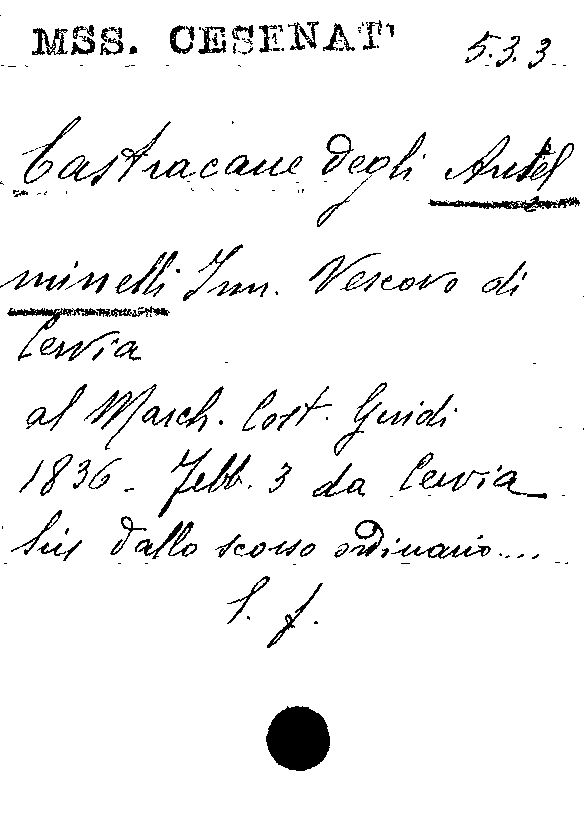 MSS. CESENAT 5.3.3
Castracane degli Antel
minelli Inn. Vescovo di
Cervia
al March. Cost. Guidi
1836 - Febb. 3 da Cervia
Sin dallo scorso ordinario...
l. f.